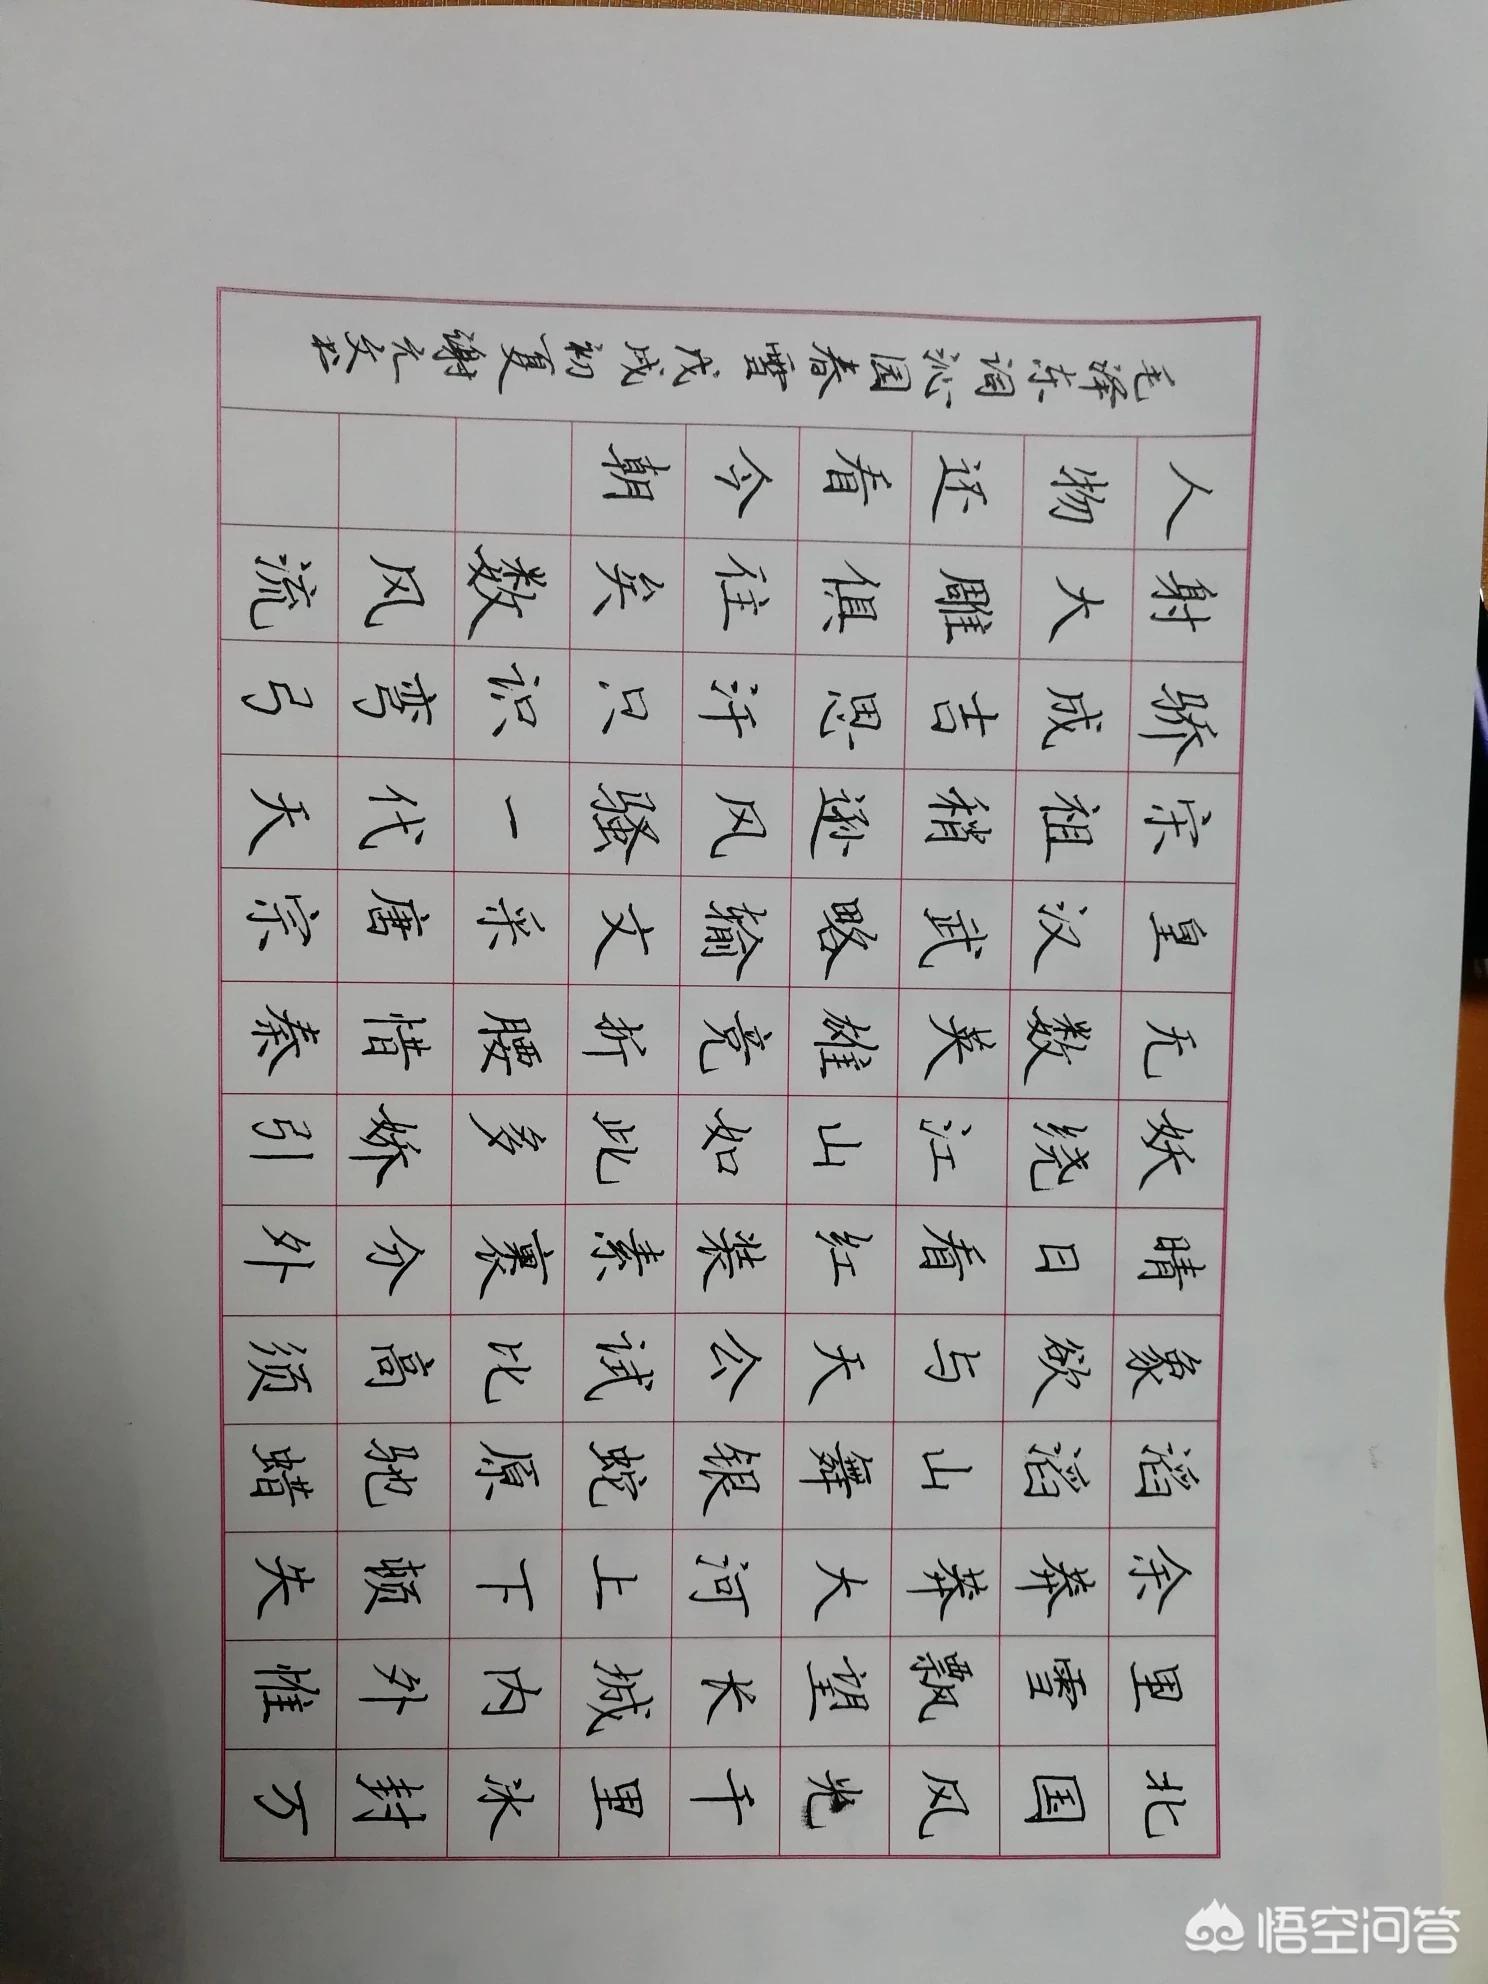 北国风光千里冰封万
里雪飘望长城内外惟
余莽莽大河上下顿失
滔滔山舞银蛇原驰蜡
象欲与天公试比高须
晴日看红装素裹分外
妖绕江山如此多娇引
无数英雄竞折腰惜秦
皇汉武略输文采唐宗
宋祖稍逊风骚一代天
骄成吉思汗只识弯弓
射大雕俱往矣数风流
人物还看今朝
毛泽东词沁园春雪戊戌初夏谢元文书
悟空问答